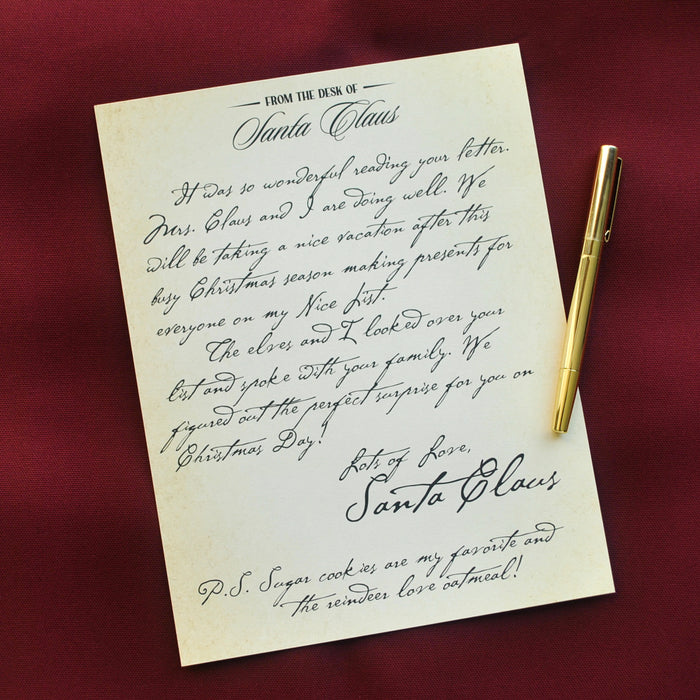 FROM THE DESK OF
Santa Claus
It was so wonderful reading your letter.
Mrs. Claus and I are doing well. We
will be taking a nice vacation after this
busy Christmas season making presents for
everyone on my Nice List.
The elves and I looked over your
list and spoke with your family. We
figured out the perfect surprise for you on
Christmas Day!
Lots of Love,
Santa Claus
P.S. Sugar cookies are my favorite and
the reindeer love oatmeal!